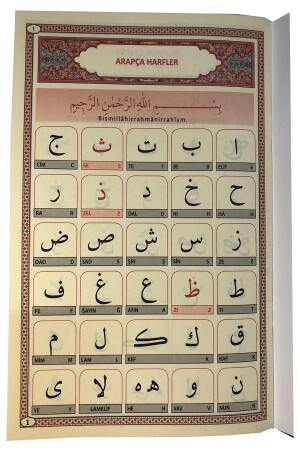 1
ARAPÇA HARFLER
بِسْمِ اللهِ الرَّحْمٰنِ الرَّحِيمِ
Bismillâhirrahmânirrahîym.
ا ب ت ث ج
CİM C SE S TE T BE B ELİF E
ح خ د ذ ر
RA R ZEL Z DAL D HI H HA H
ز س ش ص ض
DAD D SAD S ŞIN Ş SİN S ZE Z
ط ظ ع غ ف
FE F ĞAYIN Ğ AYIN A ZI Z TI T
ق ك ك ل م
MİM M LAM L KEF K KAF K
ن و ه ه لا ى
YE Y LAMELİF HE H VAV V NUN N
1